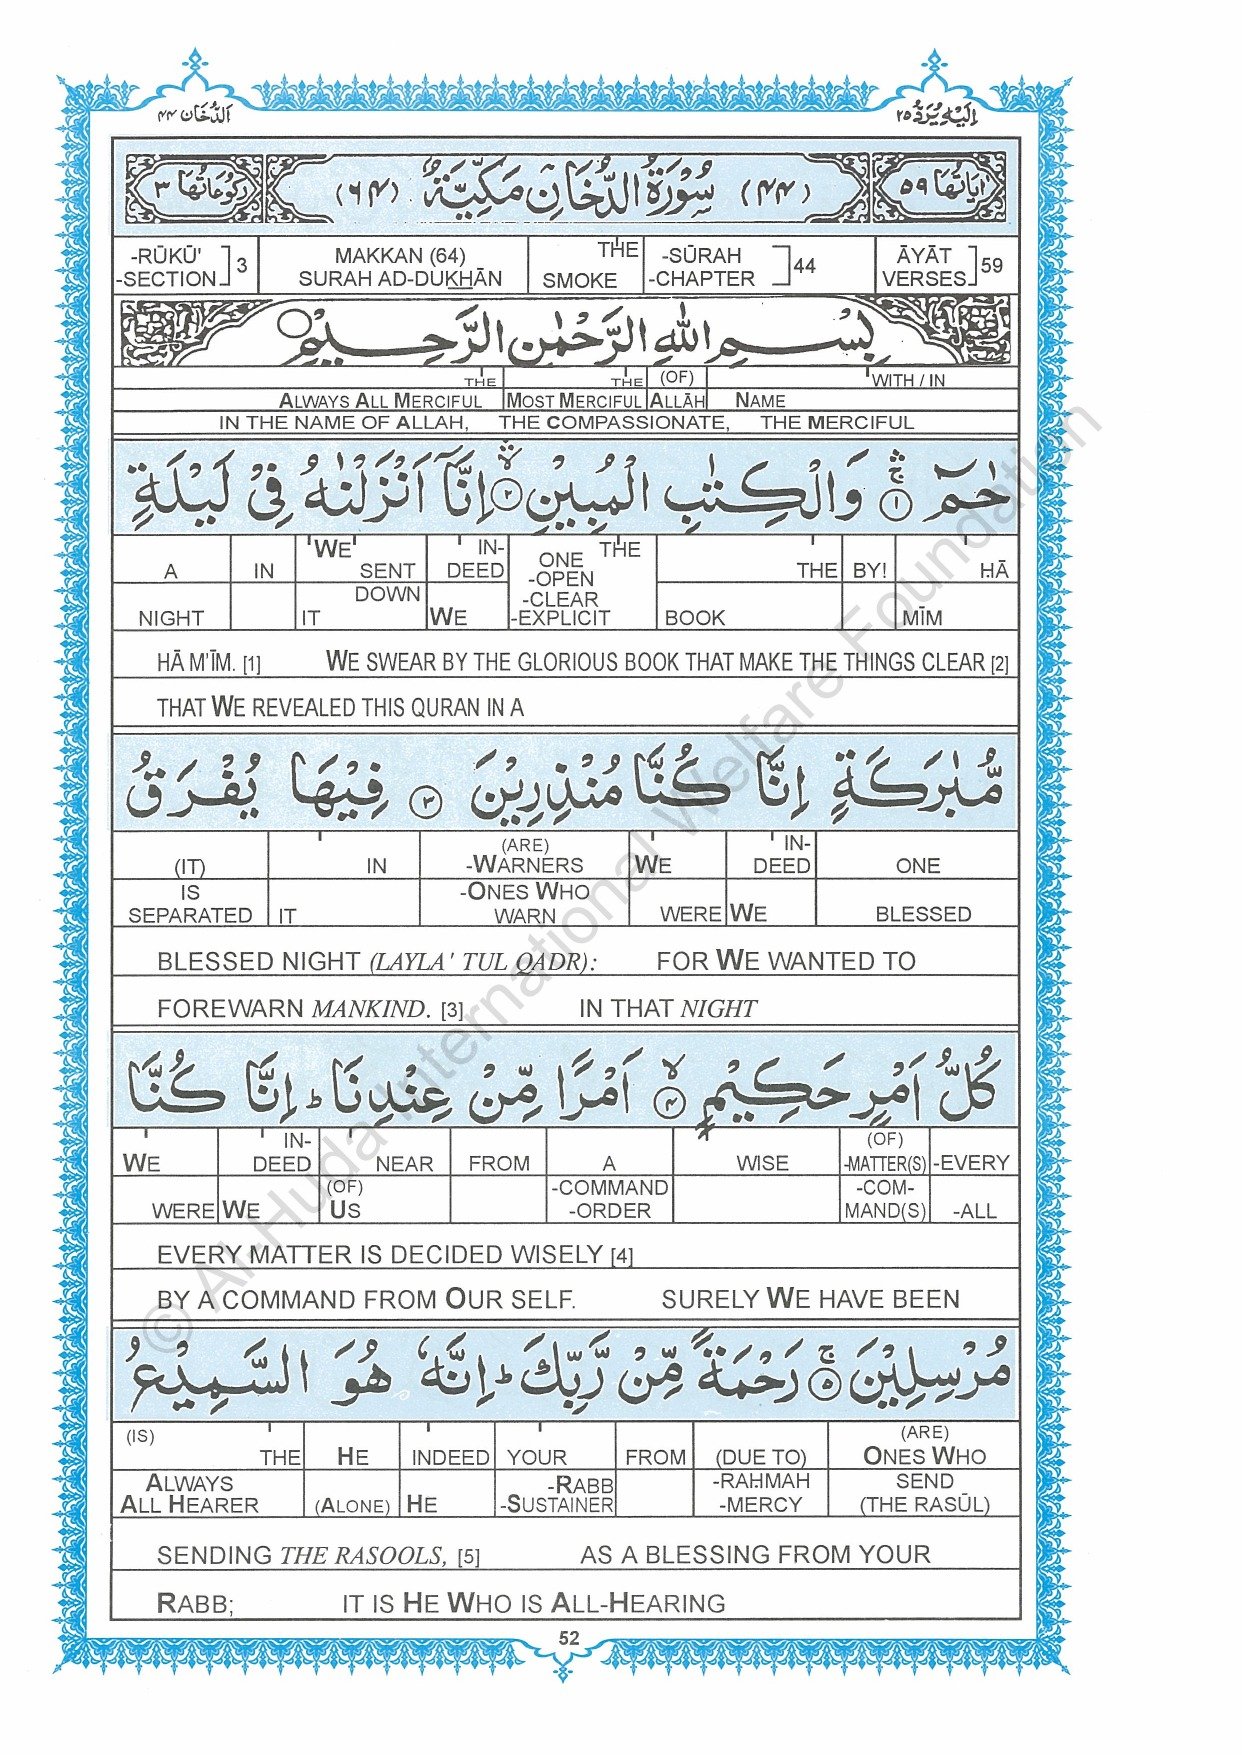 اَلدُّخَان ۴۴ اِلَيْهِ يُرَدُّ ۲۵
اٰيَاتُهَا ۵۹ (۴۴) سُوْرَةُ الدُّخَانِ مَكِّيَّةٌ (۶۴) رُكُوْعَاتُهَا ۳
-RŪKŪ' -SECTION ] 3 MAKKAN (64) SURAH AD-DUKHĀN THE SMOKE -SŪRAH -CHAPTER ] 44 ĀYĀT VERSES ] 59
بِسْمِ اللّٰهِ الرَّحْمٰنِ الرَّحِيْمِ
THE THE (OF) WITH / IN
ALWAYS ALL MERCIFUL MOST MERCIFUL ALLĀH NAME
IN THE NAME OF ALLAH, THE COMPASSIONATE, THE MERCIFUL
حٰمٓ ۚ ۱ وَالْكِتٰبِ الْمُبِيْنِ ۙ ۲ اِنَّآ اَنْزَلْنٰهُ فِيْ لَيْلَةٍ
A IN WE SENT IN-DEED ONE THE THE BY! ḤĀ
NIGHT DOWN IT WE -OPEN -CLEAR -EXPLICIT BOOK MĪM
HĀ M'ĪM. [1] WE SWEAR BY THE GLORIOUS BOOK THAT MAKE THE THINGS CLEAR [2]
THAT WE REVEALED THIS QURAN IN A
مُّبٰرَكَةٍ اِنَّا كُنَّا مُنْذِرِيْنَ ۳ فِيْهَا يُفْرَقُ
(IT) IN (ARE) -WARNERS WE IN-DEED ONE
IS SEPARATED IT -ONES WHO WARN WERE WE BLESSED
BLESSED NIGHT (LAYLA' TUL QADR): FOR WE WANTED TO
FOREWARN MANKIND. [3] IN THAT NIGHT
كُلُّ اَمْرٍ حَكِيْمٍ ۙ ۴ اَمْرًا مِّنْ عِنْدِنَا ؕ اِنَّا كُنَّا
WE IN-DEED NEAR FROM A WISE (OF) -MATTER(S) -EVERY
WERE WE (OF) US -COMMAND -ORDER -COM-MAND(S) -ALL
EVERY MATTER IS DECIDED WISELY [4]
BY A COMMAND FROM OUR SELF. SURELY WE HAVE BEEN
مُرْسِلِيْنَ ۚ ۵ رَحْمَةً مِّنْ رَّبِّكَ ؕ اِنَّهٗ هُوَ السَّمِيْعُ
(IS) THE HE INDEED YOUR FROM (DUE TO) (ARE) ONES WHO
ALWAYS ALL HEARER (ALONE) HE -RABB -SUSTAINER -RAḤMAH -MERCY SEND (THE RASŪL)
SENDING THE RASOOLS, [5] AS A BLESSING FROM YOUR
RABB; IT IS HE WHO IS ALL-HEARING
52
© Al-Huda International Welfare Foundation